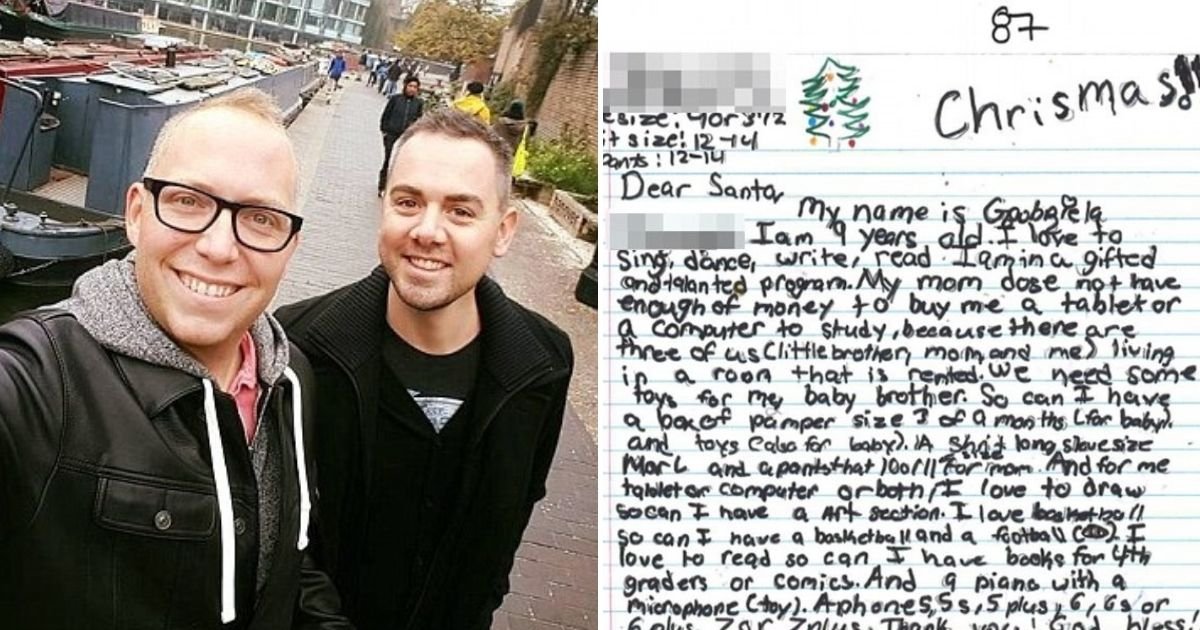 87
Chrismas!!
esize: 4 or 3 1/2
t size: 12-14
ants: 12-14
Dear Santa,
My name is
I am 9 years old. I love to
sing, dance, write, read. I am in a gifted
and talanted program. My mom dose not have
enough of money to buy me a tablet or
a computer to study, because there are
three of us (little brother, mom, and me) living
in a room that is rented. We need some
toys for my baby brother. So can I have
a box of pamper size 3 of 9 months (for baby).
and toys (also for baby). A shirt long slave size
M or L and a pants that 10 or 11 for mom. And for me
tablet or computer or both, I love to draw
so can I have a Art section. I love basketball
so can I have a basketball and a football ( ). I
love to read so can I have books for 4th
graders or comics. And a piano with a
microphone (toy). A phone 5, 5s, 5 plus, 6, 6s or
6 plus, 7 or 7 plus. Thank you! God bless.